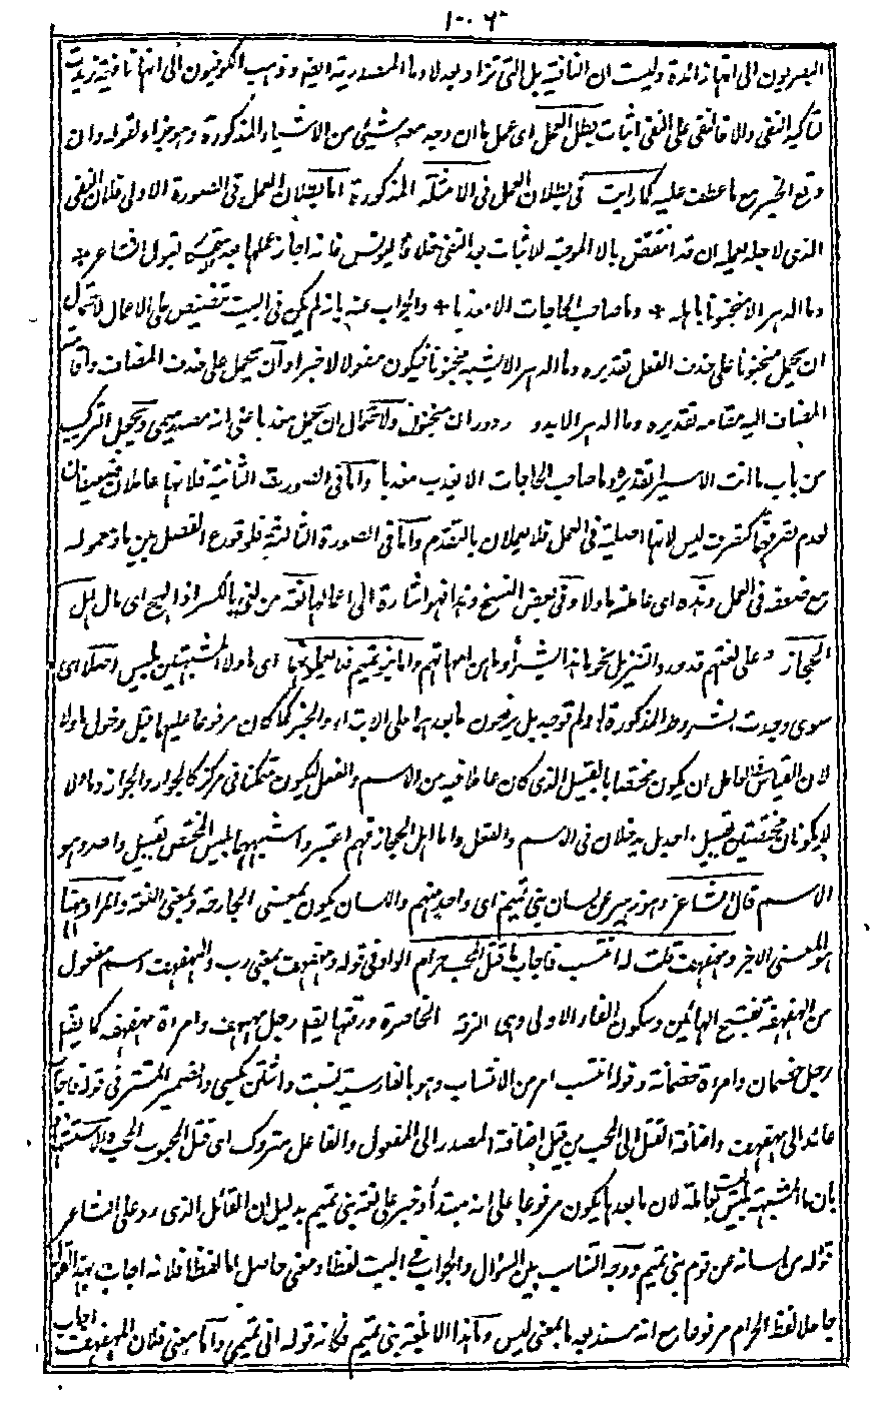 ١٠٠٦
البصريون الى انها زائدة وليست ان النافية بل التى تزاد بعد لا وما المصدرية ايضا وذهب الكوفيون الى انها نافية زيدت
لتاكيد النفى والا فالنفى على النفى اثبات بطل العمل اى عمل ما ان وجد معه شيئ من الاشياء المذكورة وهو جزاء لقوله وان
وقع الخبر مع ما عطف عليه كما رايت فى بطلان العمل فى الامثلة المذكورة اما بطلان العمل فى الصورة الاولى فلان النفى
الذى لاجله تعمل ان قد انتقض بالا الموجبة لاثبات بعد النفى خلافا ليونس فانه اجاز عملها بعد تمسكه بقول الشاعر
وما الدهر الا منجنونا باهله + وما صاحب الحاجات الا معذبا + والجواب عنه بانه لم يكن فى البيت تنصيص على الاعمال لاحتمال
ان يحمل منجنونا على حذف الفعل تقديره وما الدهر الا يشبه منجنونا فيكون مفعولا لا خبرا وان يحمل على حذف المضاف واقامة
المضاف اليه مقامه تقديره وما الدهر الا يدور دوران منجنون ولاحتمال ان يحمل معذبا على انه مصدر ميمى ويحمل التركيب
من باب ما انت الا سيرا تقديره وما صاحب الحاجات الا يعذب معذبا واما فى الصورة الثانية فلانها عاملان ضعيفان
لعدم تصرفهما كتصرف ليس لانها اصلية فى العمل فلا يعملان بالتقدم واما فى الصورة الثالثة فلوقوع الفصل بين ما ومعموله
مع ضعفه فى العمل وهذه اى عاملة ما ولا وفى بعض النسخ وهذا فهو اشارة الى اعمالها لغة من لغى بالكسر اذا لهج اى مال اهل
الحجاز وعلى لغتهم قد ورد التنزيل نحو ما هذا بشرا وما هن امهاتهم واما بنو تميم فلا يعملونها اى ما ولا المشبهتين بليس اصلا اى
سوى وجدت الشروط المذكورة او لم توجد بل يرفعون ما بعدها على الابتداء والخبر كما كان مرفوعا عليهما قبل دخول ما ولا
لان القياس فى العامل ان يكون مختصا بالقبيل الذى كان عاملا فيه من الاسم والفعل ليكون متمكنا فى مركزه كالجوار والجواز وما ولا
لا يكونان مختصتين بقبيل واحد بل يدخلان فى الاسم والفعل واما اهل الحجاز فهم اعتبروا شبههما بليس المختص بقبيل واحد وهو
الاسم قال الشاعر وهو زهير عن لسان بنى تميم اى واحد منهم واللسان يكون بمعنى الجارحة وبمعنى اللغة والمراد ههنا
هو المعنى الاخر ومهفهف قلت له انتسب فاجاب ما قتل المحب حرام الواو فى قوله ومهفهف بمعنى رب والمهفهف اسم مفعول
من الهفهفة بفتح الهائين وسكون الفاء الاولى وهى الرقة الخاصرة ورقتها يقم رجل مهفهف وامراة مهفهفة كما يقم
رجل خمصان وامراة خمصانة وقوله انتسب امر من الانتساب وهو بالفارسية نسبت داشتن بكسى والضمير المستتر فى قوله فاجاب
عائد الى مهفهف واضافة القتل الى المحب من قبيل اضافة المصدر الى المفعول والفاعل متروك اى قتل المحبوب المحب والاستشهاد
بان ما المشبهة بليس ليست بعاملة لان ما بعدها يكون مرفوعا على انه مبتدأ وخبر على لغة بنى تميم بدليل ان القائل الذى رد على الشاعر
قوله من لسانه عن قوم بنى تميم ووجه التناسب بين السؤال والجواب فى البيت لفظا ومعنى حاصل اما لفظا فلانه اجاب بهذا القول
جاعلا لفظ الحرام مرفوعا مع انه مسند بعد ما بمعنى ليس وما هذا الا لغة بنى تميم فكانه قوله انى تميمى واما معنى فلان المهفهف اجاب